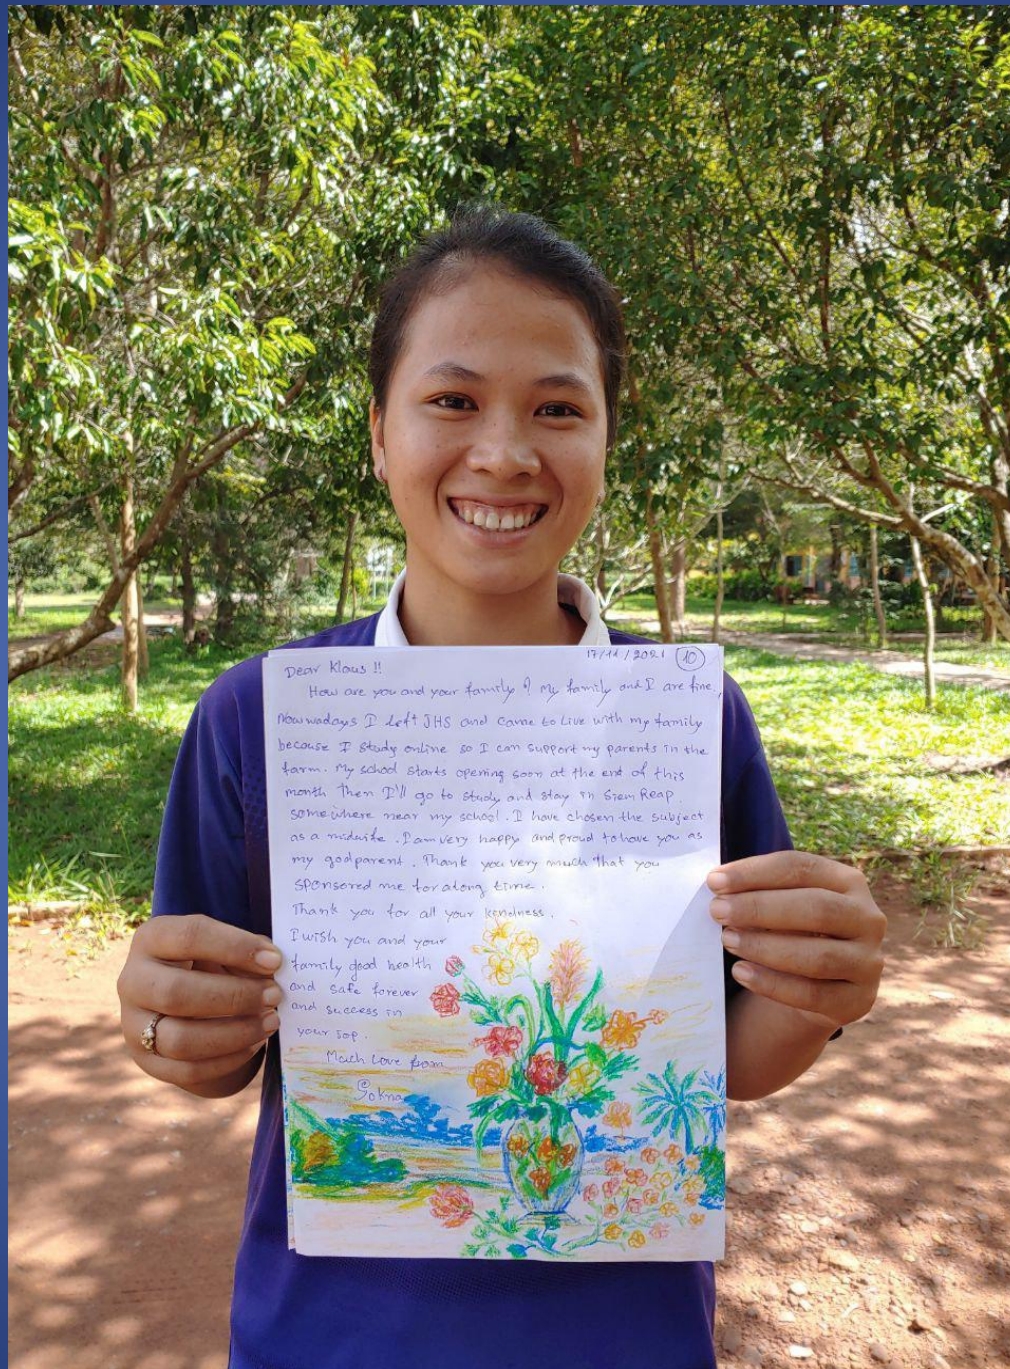 17/11/2021 10
Dear Klaus !!
How are you and your family ? My family and I are fine,
Nowwadays I left JHS and came to Live with my family
because I study online so I can support my parents in the
farm. My school starts opening soon at the end of this
month Then I'll go to study and stay in Siem Reap
somewhere near my school. I have chosen the subject
as a midwife. I am very happy and proud to have you as
my godparent. Thank you very much that you
sponsored me for along time.
Thank you for all your kendness.
I wish you and your
family good health
and safe forever
and success in
your Jop.
Much Love from
Sokna